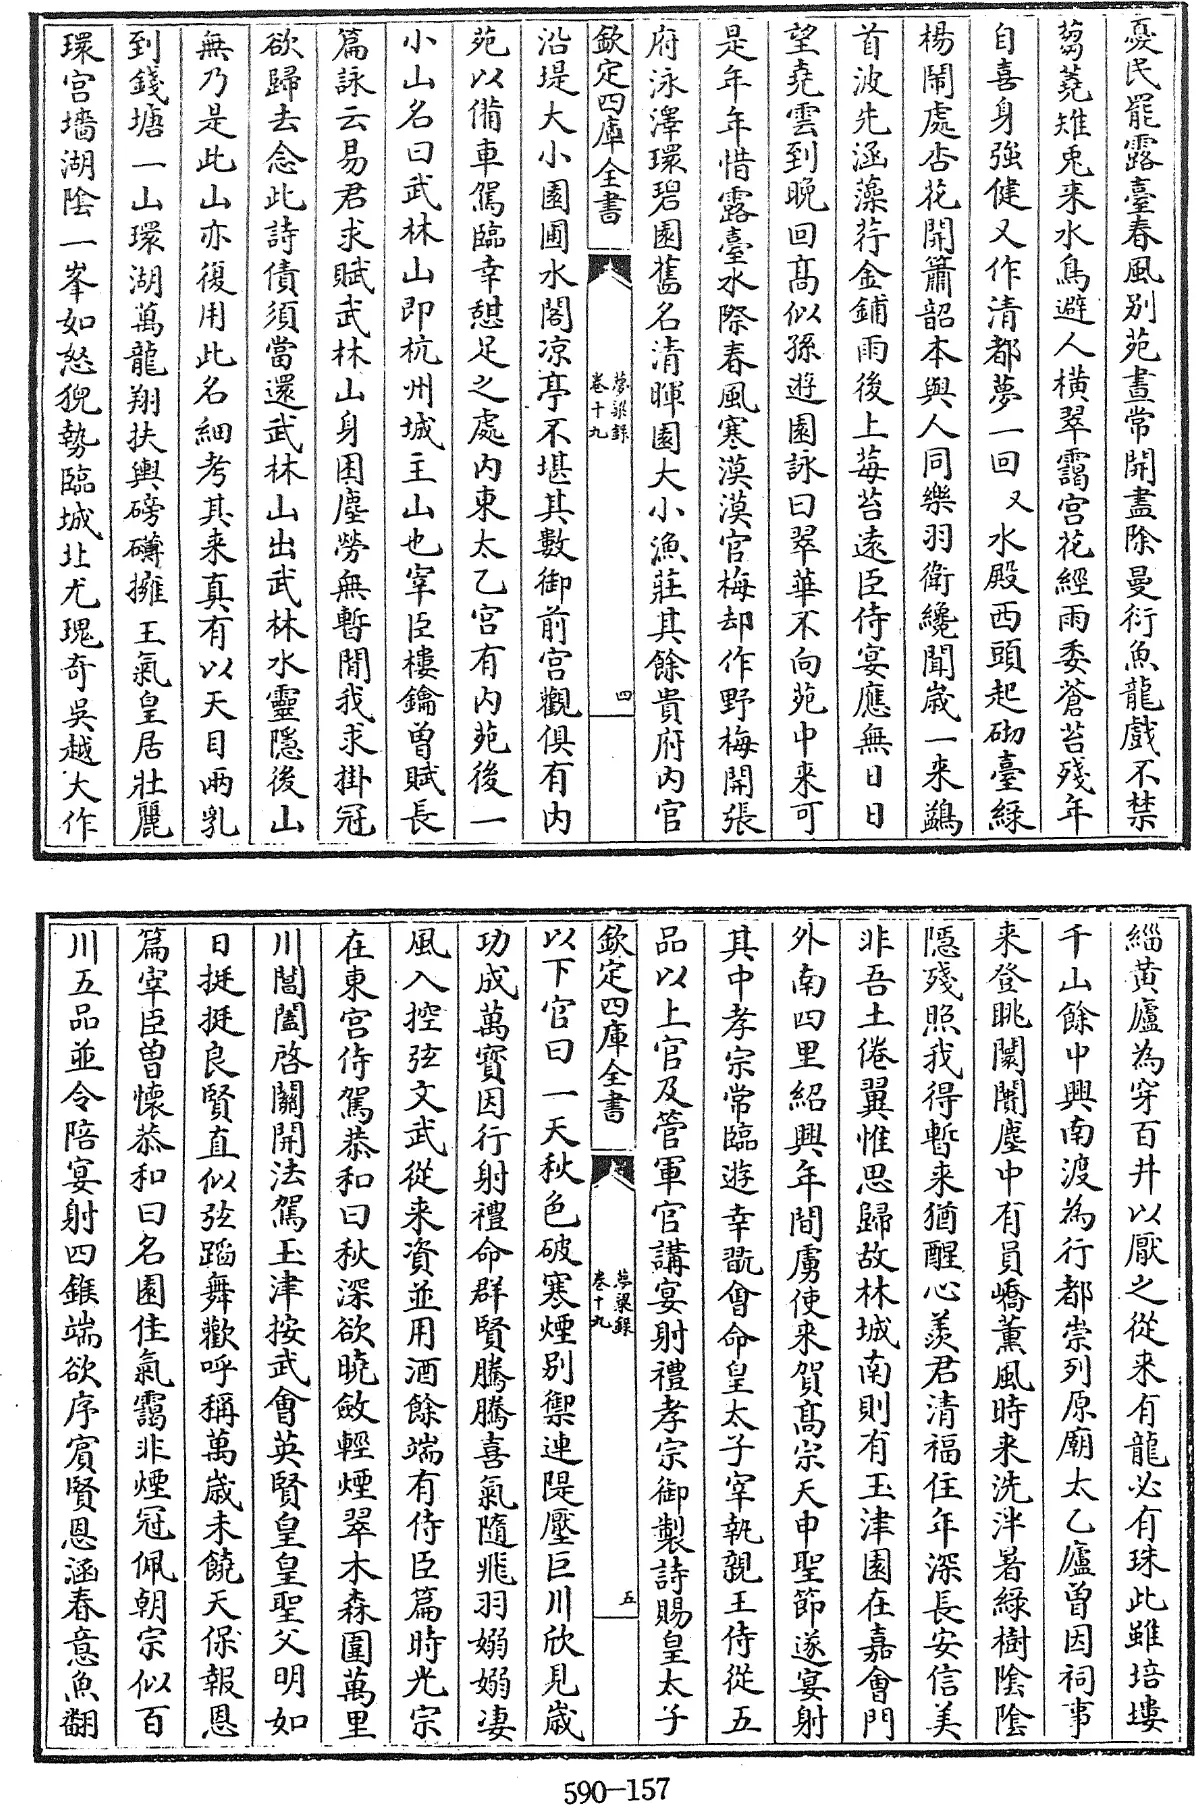 憂民罷露臺春風别苑晝常開盡除曼衍魚龍戲不禁
芻蕘雉兎来水鳥避人橫翠靄宫花經雨委蒼苔殘年
自喜身強健又作清都夢一回又水殿西頭起砌臺綠
楊鬧處杏花開簫韶本與人同樂羽衛纔聞歲一来鷁
首波先涵藻荇金鋪雨後上莓苔逺臣侍宴應無日日
望堯雲到晚回髙似孫遊園詠曰翠華不向苑中来可
是年年惜露臺水際春風寒漠漠官梅却作野梅開張
府泳澤環碧園舊名清暉園大小漁莊其餘貴府内官
欽定四庫全書
夢粱録
卷十九
四
沿堤大小園囿水閣凉亭不堪其數御前宫觀俱有内
苑以備車駕臨幸憇足之處内東太乙宫有内苑後一
小山名曰武林山即杭州城主山也宰臣樓鑰曾賦長
篇詠云易君求賦武林山身困塵勞無暫閒我求掛冠
欲歸去念此詩債須當還武林山出武林水靈隱後山
無乃是此山亦復用此名細考其来真有以天目兩乳
到錢塘一山環湖萬龍翔扶輿磅礴擁王氣皇居壯麗
環宫墻湖陰一峯如怒猊勢臨城北尤瑰奇吳越大作
緇黄廬為穿百井以厭之從来有龍必有珠此雖培塿
千山餘中興南渡為行都崇列原廟太乙廬曾因祠事
来登眺闤闠塵中有員嶠薰風時来洗泮暑綠樹陰陰
隱殘照我得暫来猶醒心羨君清福住年深長安信美
非吾土倦翼惟思歸故林城南則有玉津園在嘉會門
外南四里紹興年間虜使来賀髙宗天申聖節遂宴射
其中孝宗常臨遊幸翫會命皇太子宰執親王侍從五
品以上官及管軍官講宴射禮孝宗御製詩賜皇太子
欽定四庫全書
夢粱録
卷十九
五
以下官曰一天秋色破寒煙别禦連隄壓巨川欣見歲
功成萬寳因行射禮命群賢騰騰喜氣隨飛羽嫋嫋凄
風入控弦文武從来資並用酒餘端有侍臣篇時光宗
在東宫侍駕恭和曰秋深欲曉斂輕煙翠木森圍萬里
川閶闔啓關開法駕玉津按武會英賢皇皇聖父明如
日挺挺良賢直似弦蹈舞歡呼稱萬歲未饒天保報恩
篇宰臣曾懷恭和曰名園佳氣靄非煙冠佩朝宗似百
川五品並令陪宴射四鍭端欲序賓賢恩涵春意魚翻
590—157